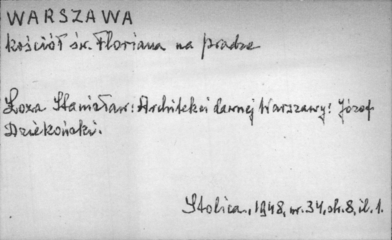 WARSZAWA
kościół św. Floriana na pradze
Łoza Stanisław: Architekci dawnej Warszawy: Józef
Dziekoński.
Stolica, 1948, nr. 34, str. 8, il. 1.